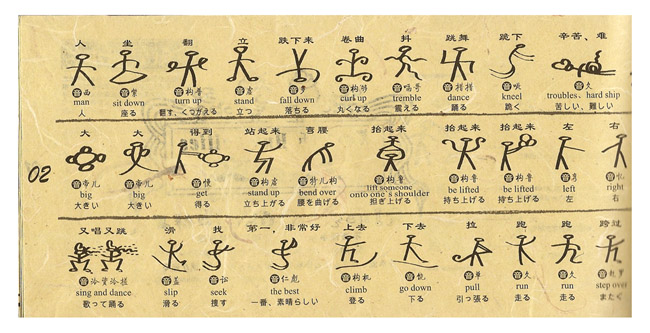 人 坐 翻 立 跌下来 卷曲 抖 跳舞 跪下 辛苦、难
man sit down turn up stand fall down curl up tremble dance kneel troubles, hard ship
人 座る 翻す、くつがえる 立つ 落ちる 丸くなる 震える 踊る 跪く 苦しい、難しい
大 大 得到 站起来 喜腰 抬起来 抬起来 抬起来 左 右
02
big big get stand up bend over lift someone onto one's shoulder be lifted be lifted left right
大きい 大きい 得る 立ち上がる 腰を曲げる 担ぎ上げる 持ち上げる 持ち上げる 左 右
又唱又跳 滑 找 第一，非常好 上去 下去 拉 跑 跑 跨过
sing and dance slip seek the best climb go down pull run run step over
歌って踊る 滑る 捜す 一番、素晴らしい 登る 下る 引っ張る 走る 走る またぐ